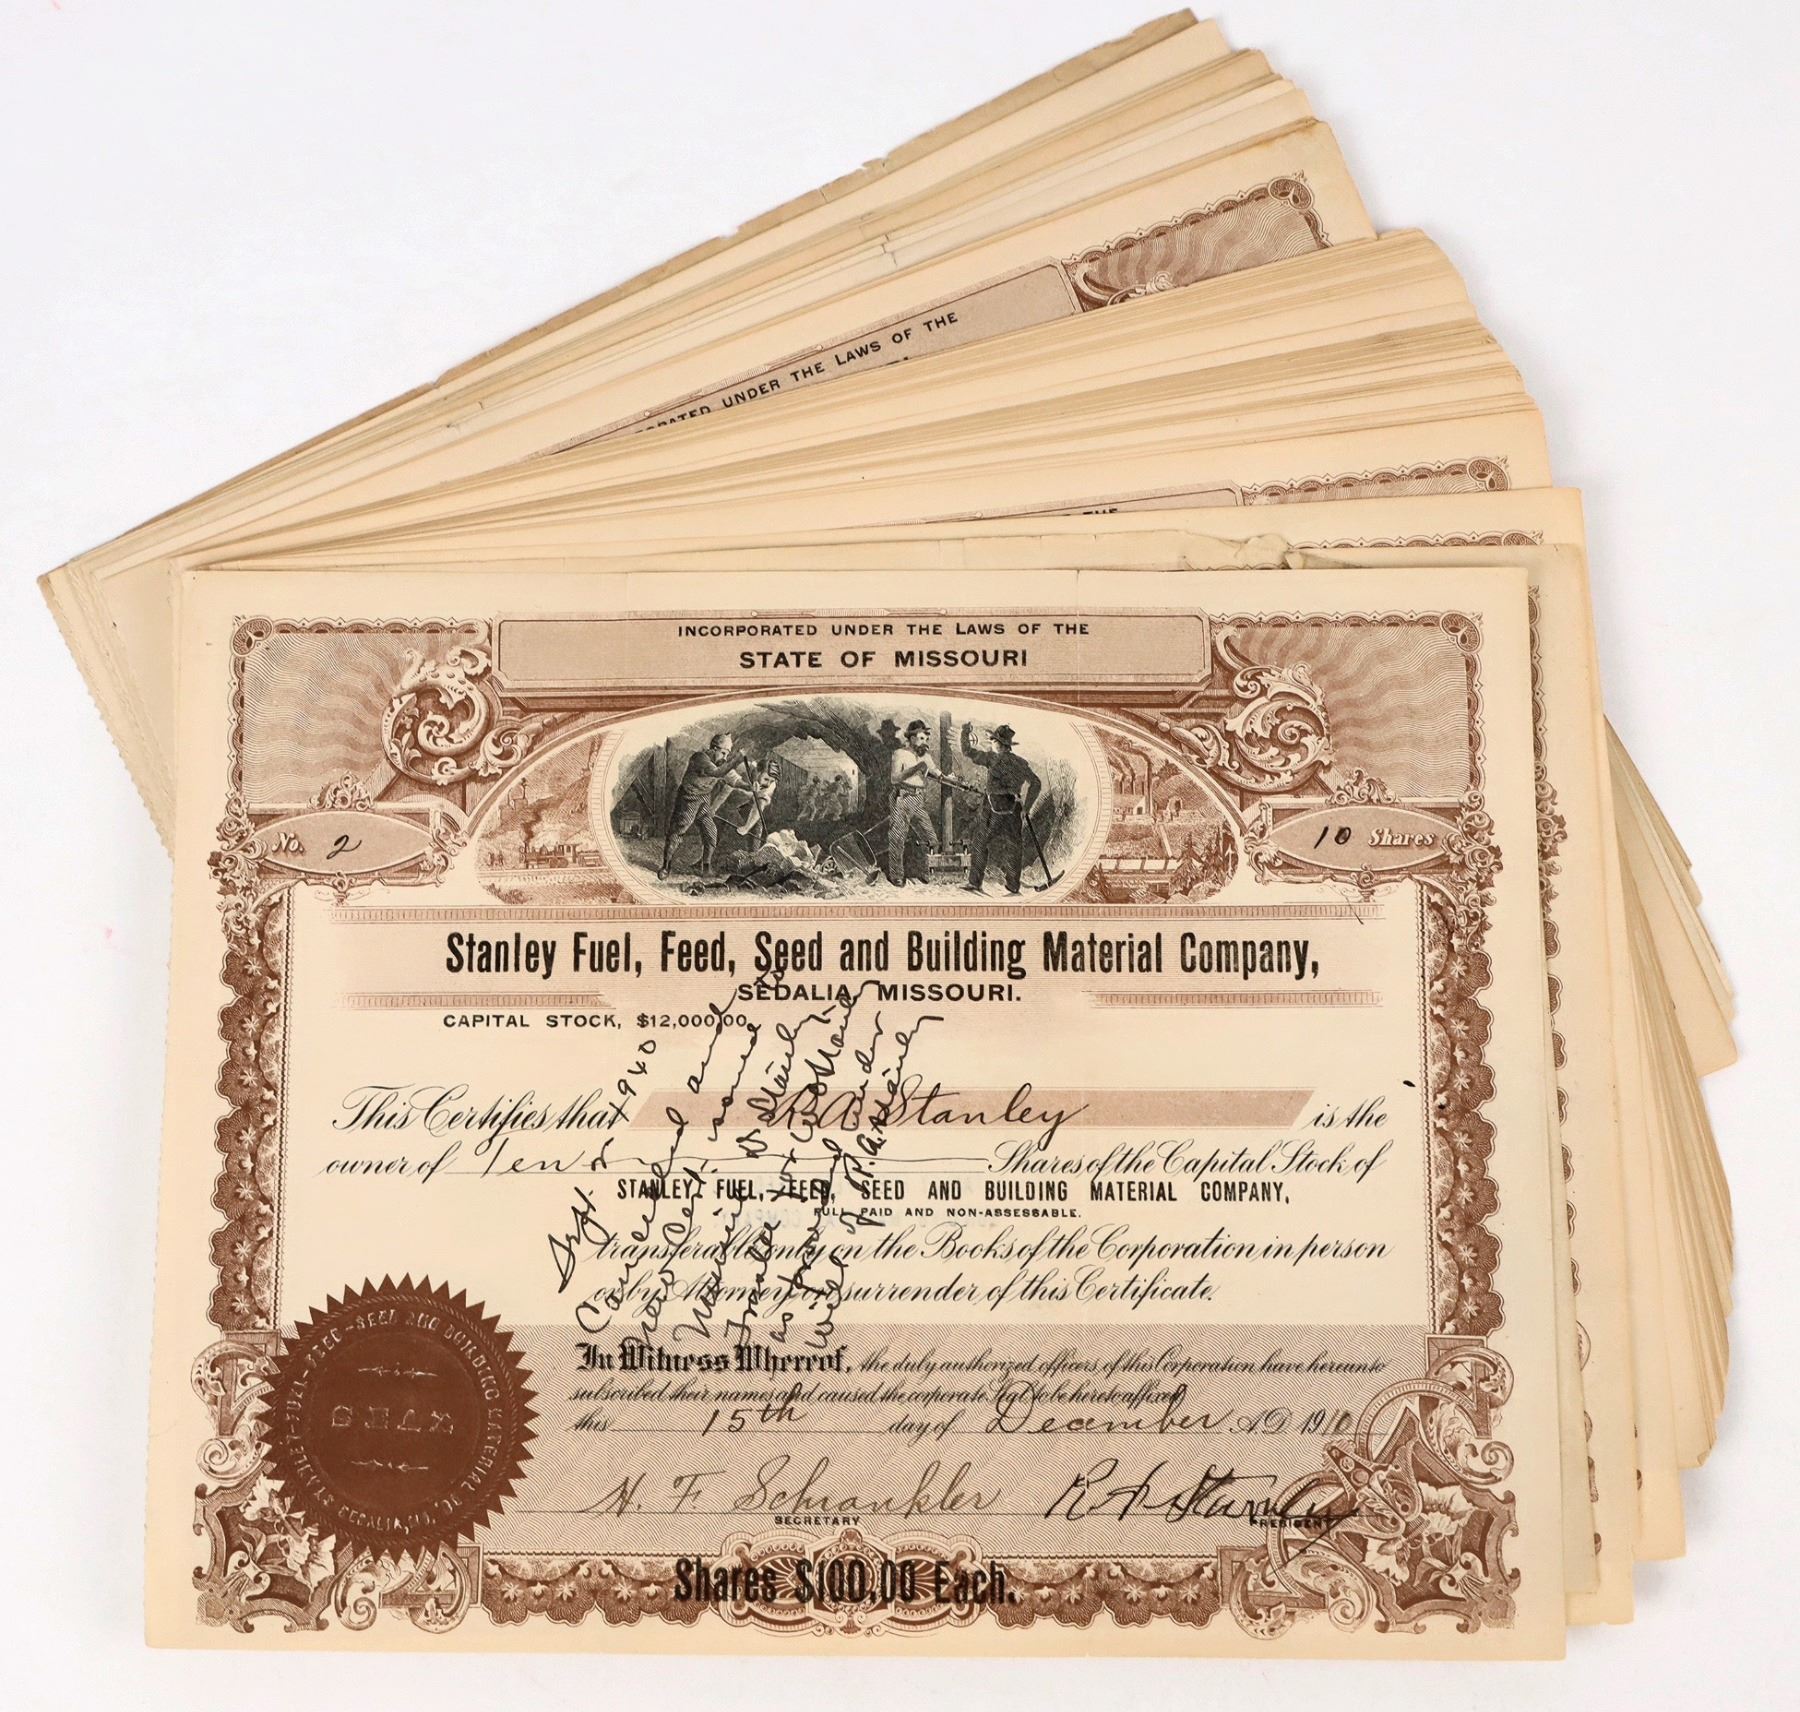 INCORPORATED UNDER THE LAWS OF THE
UNDER THE LAWS OF THE
THE
INCORPORATED UNDER THE LAWS OF THE
STATE OF MISSOURI
No. 2
10 Shares
Stanley Fuel, Feed, Seed and Building Material Company,
SEDALIA, MISSOURI.
CAPITAL STOCK, $12,000.00
This Certifies that R A Stanley is the
owner of Ten Shares of the Capital Stock of
STANLEY FUEL, FEED, SEED AND BUILDING MATERIAL COMPANY,
FULL PAID AND NON-ASSESSABLE.
transferable only on the Books of the Corporation in person
or by Attorney on surrender of this Certificate.
In Witness Whereof, the duly authorized officers of this Corporation have hereunto
subscribed their names and caused the corporate Seal to be hereto affixed
this 15th day of December A.D. 1910
H. F. Schrankler
SECRETARY
R A Stanley
PRESIDENT
Shares $100.00 Each.
Sept. 1940
Cancelled and
New Cert. issued to
Stanley
Trustee
as
Will of R. A. Stanley
STANLEY-FUEL-FEED-SEED AND BUILDING MATERIAL CO.
SEDALIA, MO.
SEAL